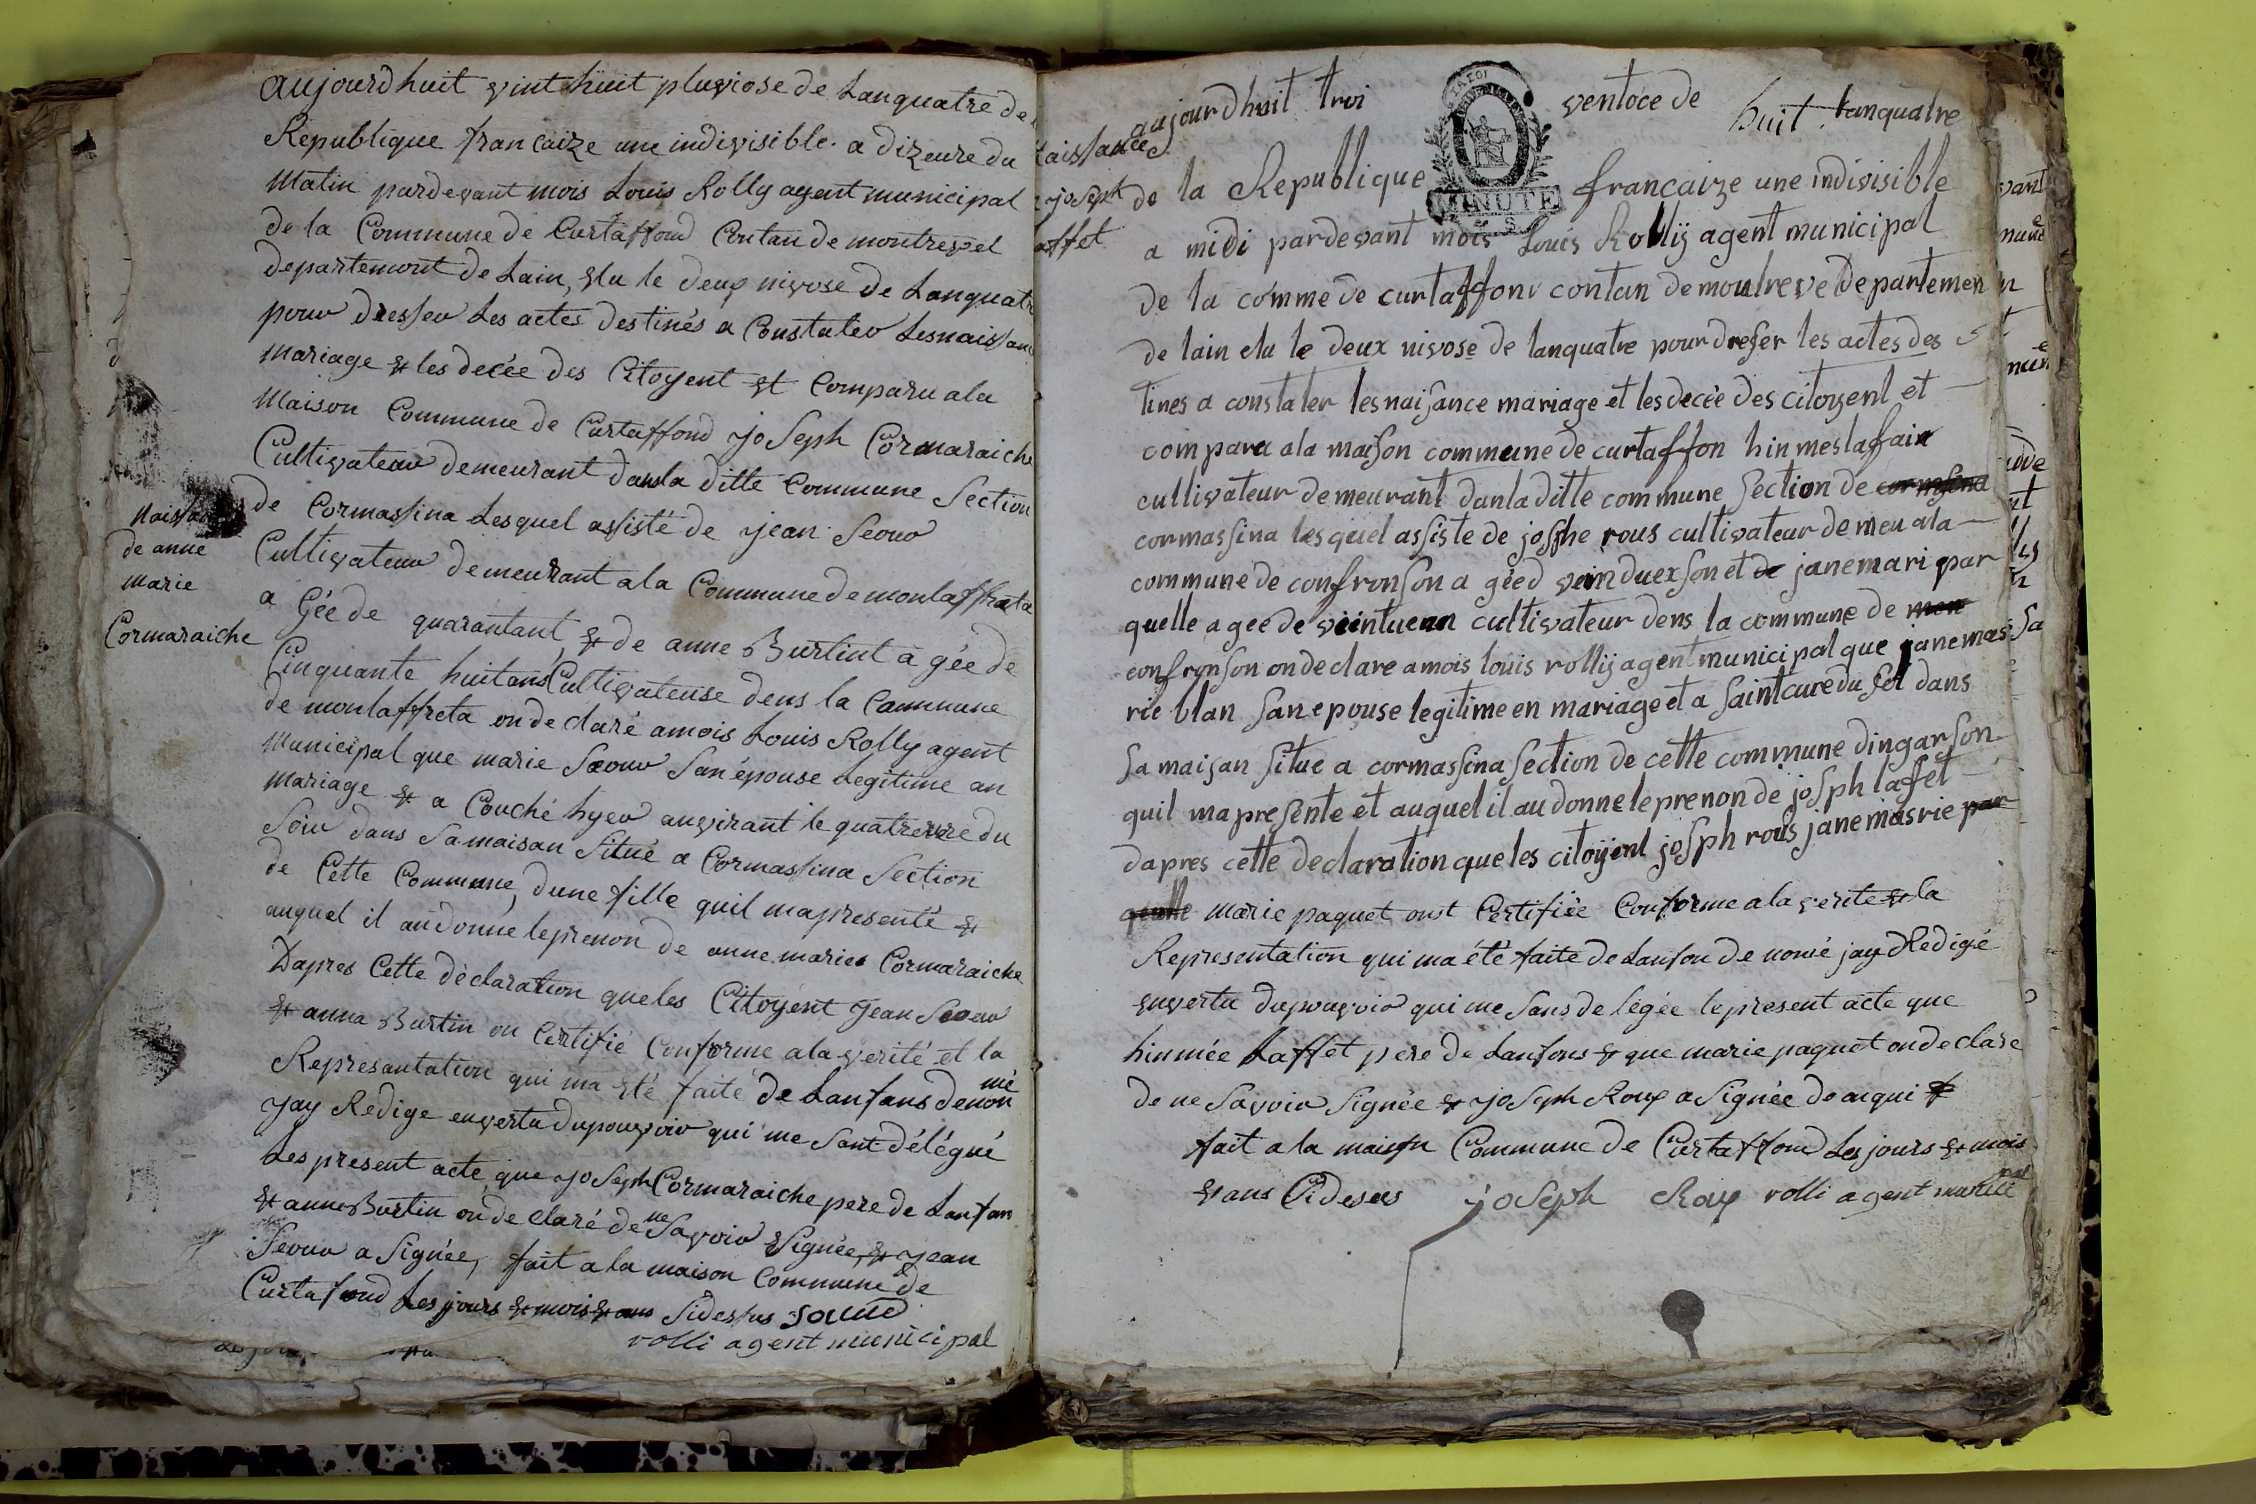 aujourdhuit vint huit pluviose de Lanquatre de
Republique francaize une indivisible. a dizeure du
Matin pardevant mois Louis Rolly agent municipal
de la Commune de Curtaffond Contan de montrevel
departement de Lain, Elu le deux nivose de Lanquatre
pour dresser Les actes destinés a Constater Lesnaissan
mariage et les decée des Citoyent et Comparu ala
Maison Commune de Curtaffond joseph Cormaraiche
Cultivateur demeurant danla ditte Commune Section
de Cormassina Lesquel assisté de jean Seour
Cultivateur demeurant ala Commune de monlaffreta
a Gée de quarantant, et de anne Burtint a gée de
Cinquante huitans Cultivateuse dens la Commune
de monlaffreta onde claré amois Louis Rolly agent
Municipal que marie Seour San épouse Legitime an
mariage et a Couché hyer anvirant le quatre du
Soir dans Samaison Situé a Cormassina Section
de Cette Commune, dune fille quil mapresenté et
auquel il audonné leprenon de anne marie Cormaraiche
Dapres Cette déclaration queles Citoyent jean Seour
et anna Burtin on Certifié Conforme ala verité et la
Represantation qui ma Eté faité de Lanfans denon mé
jay Redige envertu dupouvoir qui me Sont délégué
Les present acte que joseph Cormaraiche pere de Lanfan
et anne Burtin onde claré de ne Savoir Signée, et jean
Seour a Signée, fait a la maison Commune de
Curtafond Les jours et mois et ans Sidessus
rolli agent municipal
Naissan
de anne
marie
Cormaraiche
aissance
joseph
affet
aujourdhuit troi ventoce de huit lanquatre
MINUTE
de la Republique francaize une indivisible
a midi pardevant mois Louis Rollij agent municipal
de la comme de curtaffon contan de moutrevel departemen
de lain elu le deux nivose de lanquatre pour dreser les actes des
tines a constater lesnaisance mariage et lesdecée des citoyent et
comparu ala maison commune de curtaffon hinmes laffain
cultivateur demeurant danla ditte commune section de cormasina
cormassina lesquel assiste de josphe rous cultivateur de meu ala
commune de confronson a géed vein duex son et de janemari par
quelle a geé de veintuenn cultivateur dens la commune de mon
confronson ondeclare amois louis rollij agent municipal que janema
rie blan san epouse legitime en mariage et a saintcuredu sol dans
sa maison situe a cormassina section de cette commune dingarson
quil mapresente et auquel il audonne leprenon de josph laffet
dapres cette declaration queles citoyent josph rous jane masrie par
quelle marie paquet ont Certifiée Conforme ala verite et la
Representation qui ma été faite de Lanfon de nomé jay Redigé
envertu dupouvoir qui me Sans de légée lepresent acte que
hinmée Laffet pere de Lanfons et que marie paquet ondeclare
de ne Savoir Signée et joseph Roux a Signée de aiqui
fait a la maison Commune de Curtaffond Les jours et mois
et ans Cidesus joseph Roux rolli agent munici pal